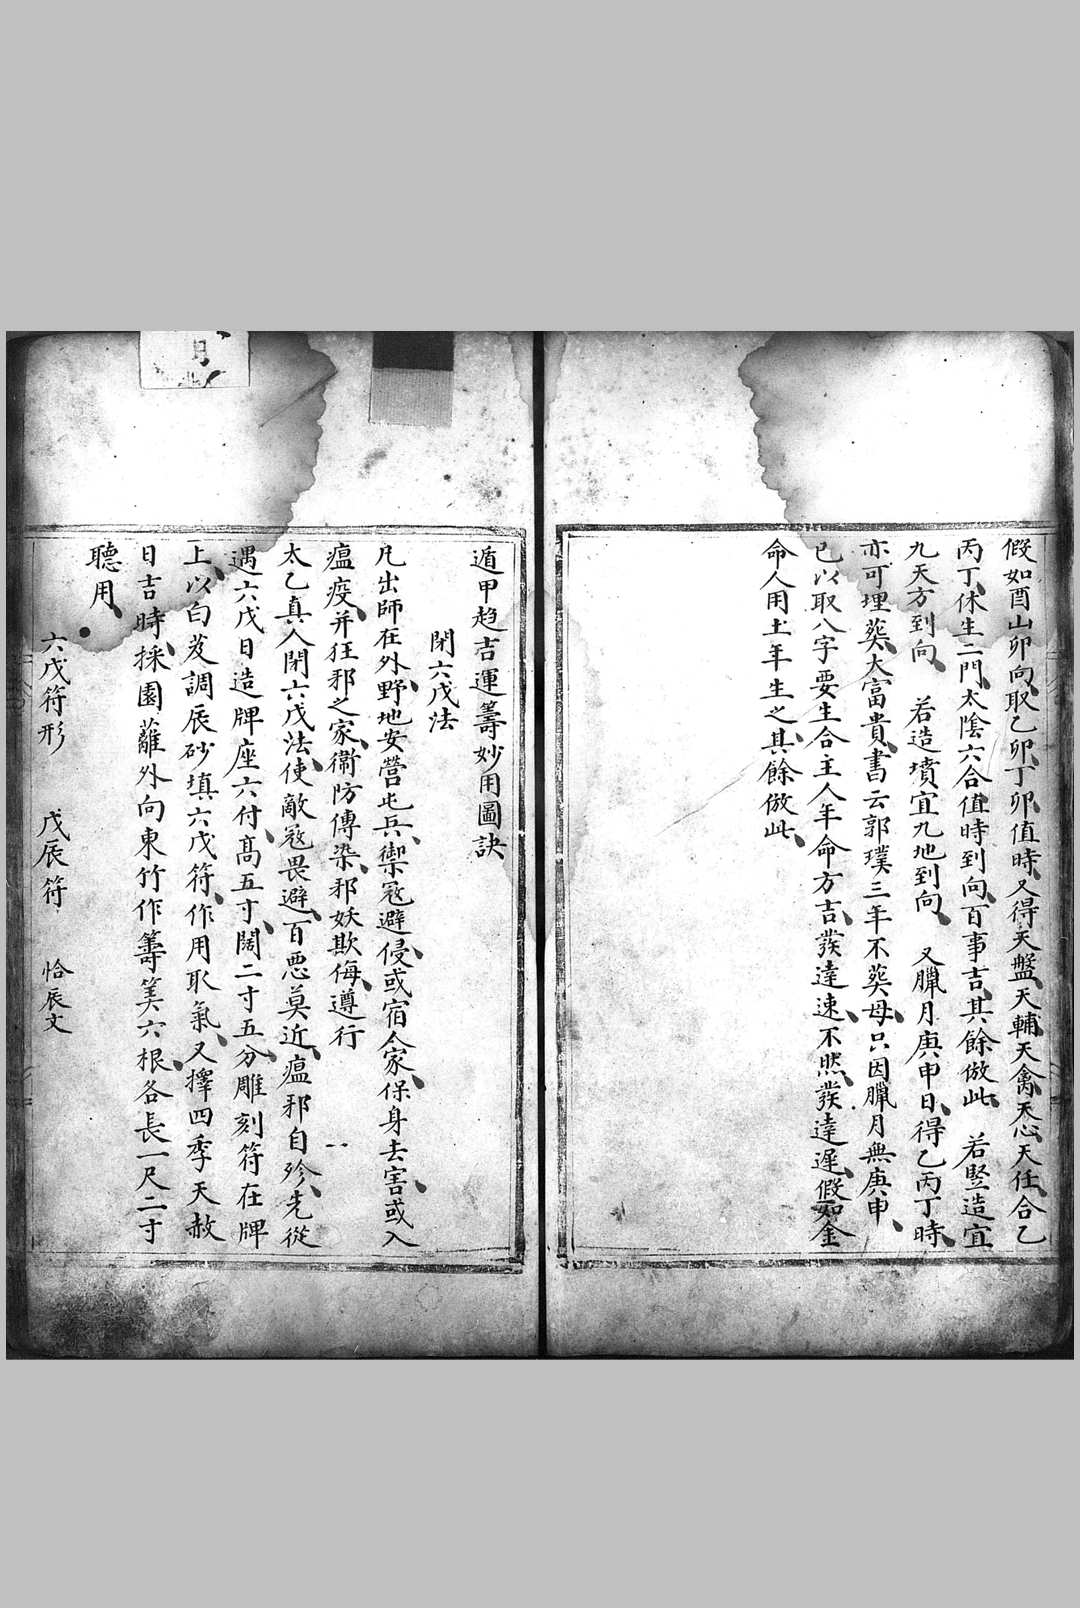 假如酉山卯向取乙卯丁卯值時又得天盤天輔天禽天心天任合乙
丙丁休生二門太陰六合值時到向百事吉其餘倣此　若豎造宜
九天方到向　若造墳宜九地到向　又臘月庚申日得乙丙丁時
亦可埋葬大富貴書云郭璞三年不葬母只因臘月無庚申
已以取八字要生合主人年命方吉發達速不然發達遲假如金
命人用土年生之其餘倣此
遁甲趋吉運籌妙用圖訣
閉六戊法
凡出師在外野地安營屯兵禦寇避侵或宿人家保身去害或入
瘟疫并狂邪之家衛防傳染邪妖欺侮遵行
太乙真人閉六戊法使敵寇畏避百恶莫近瘟邪自殄先從
遇六戊日造牌座六付高五寸闊二寸五分雕刻符在牌
上以白芨調辰砂填六戊符作用取氣又擇四季天赦
日吉時採園蘺外向東竹作籌筭六根各長一尺二寸
聽用
六戊符形　戊辰符　恰辰文
月